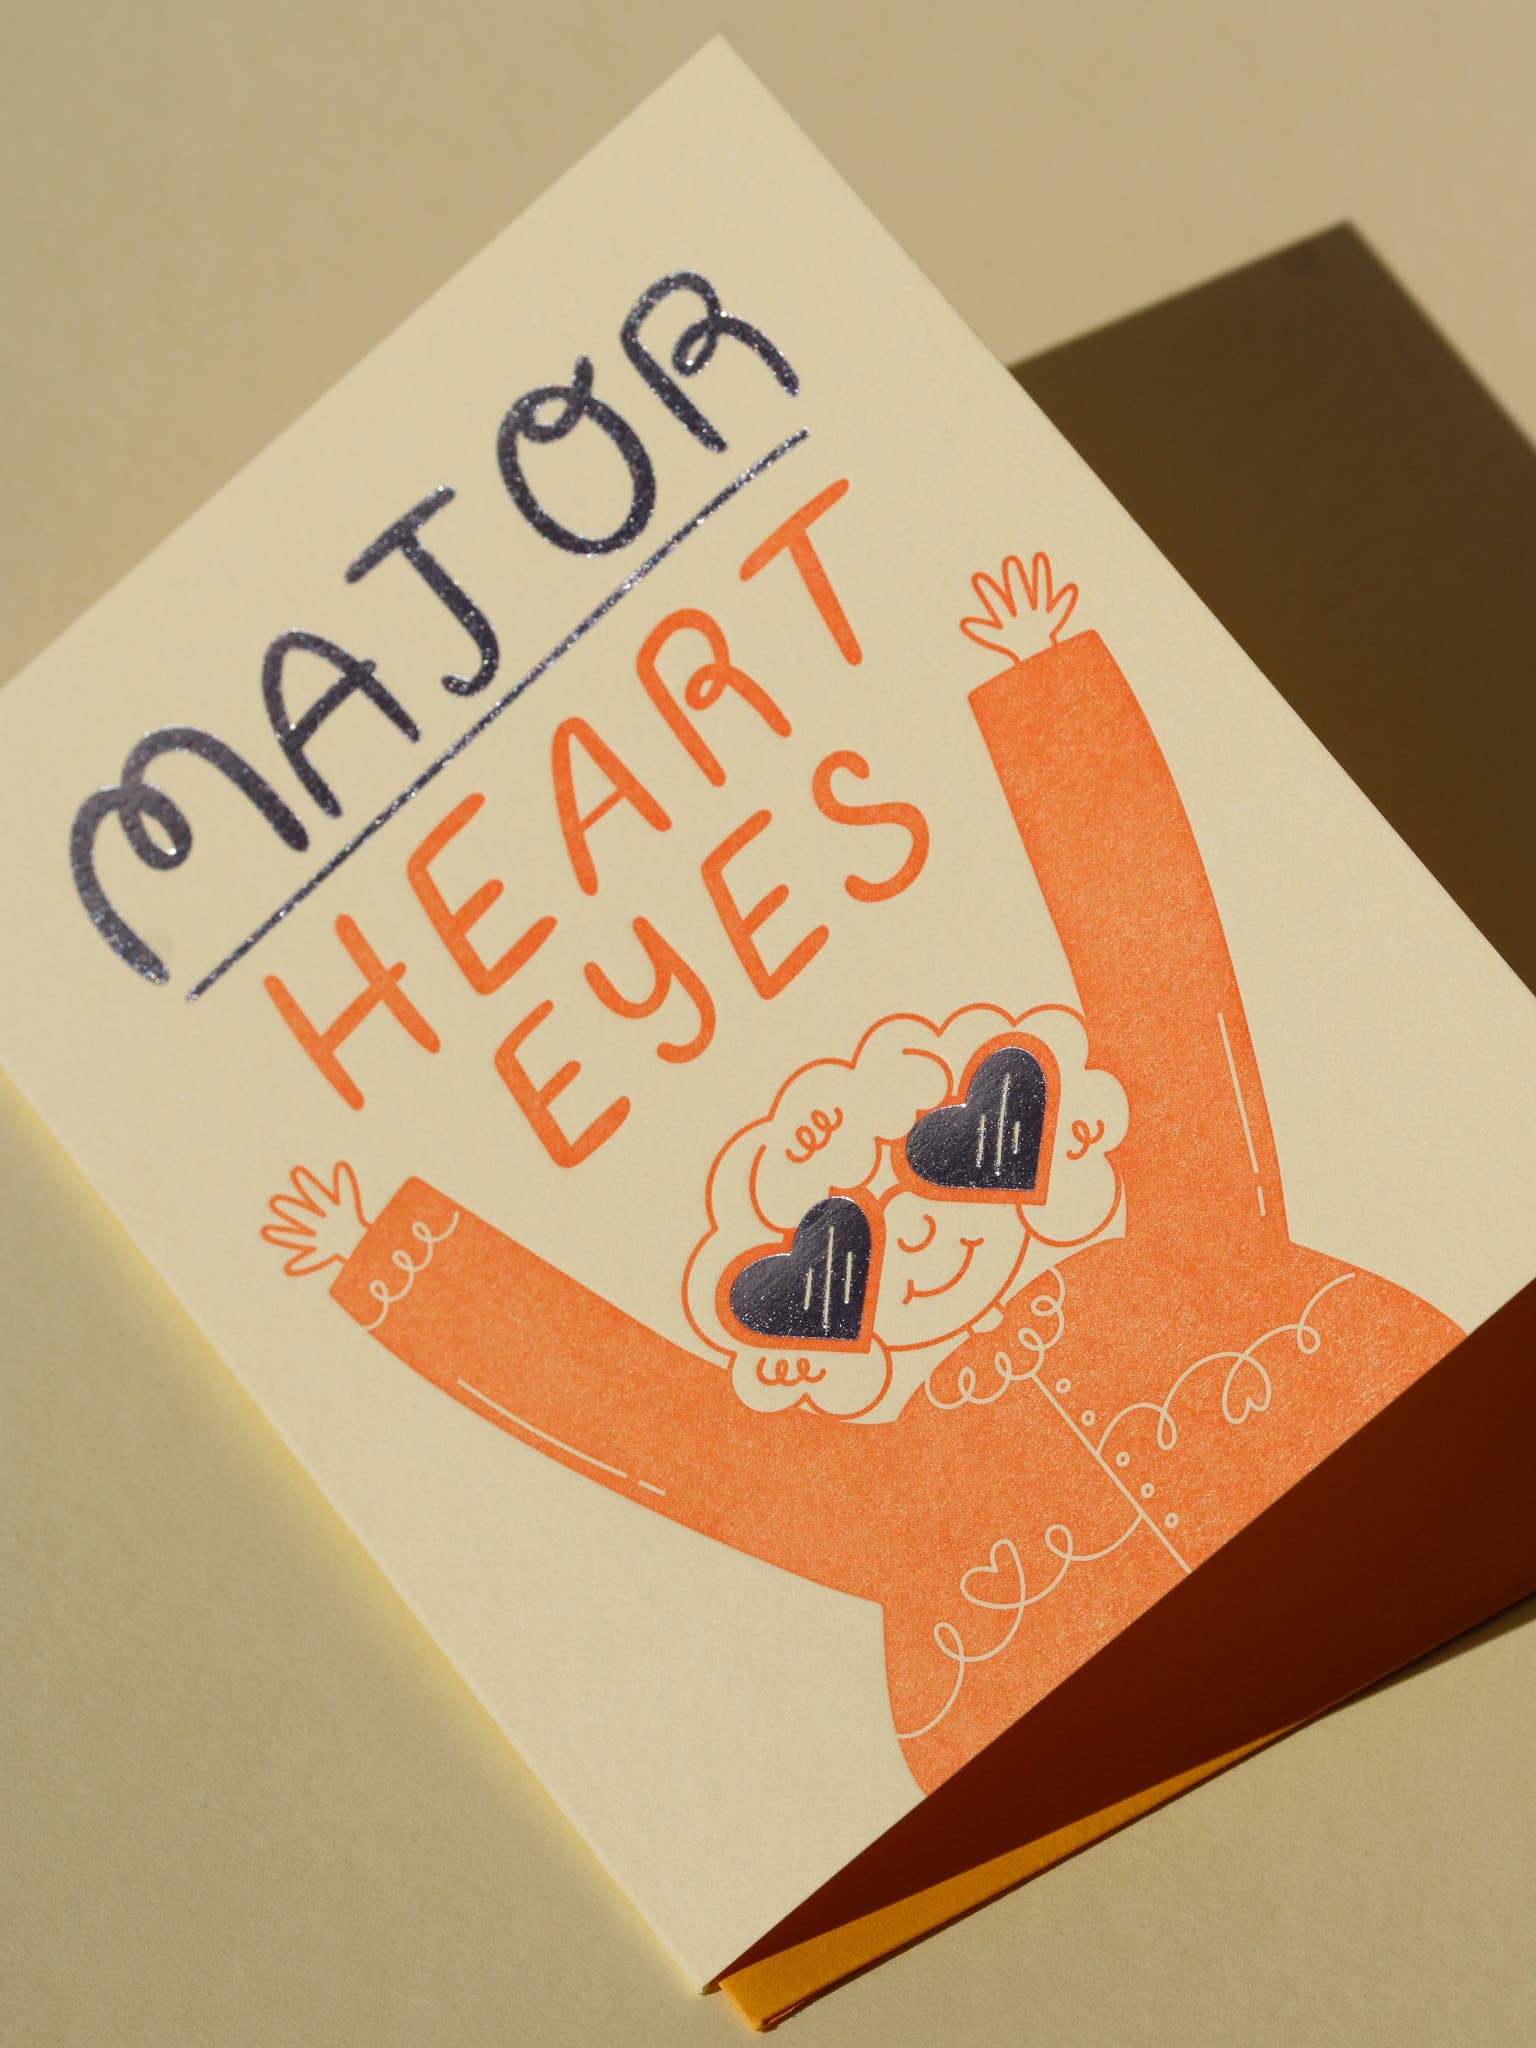 MAJOR
HEART
EYES